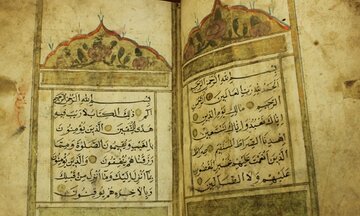 بسم الله الرحمن الرحيم
الحمد لله رب العالمين الرحمن
الرحيم مالك يوم الدين
اياك نعبد واياك نستعين
اهدنا الصراط المستقيم صراط
الذين انعمت عليهم غير المغضوب
عليهم ولا الضالين
بسم الله الرحمن الرحيم
الم ذلك الكتاب لا ريب فيه
هدى للمتقين الذين يؤمنون
بالغيب ويقيمون الصلوة ومما
رزقناهم ينفقون والذين يؤمنون
بما انزل اليك وما انزل من قبلك
وبالاخرة هم يوقنون